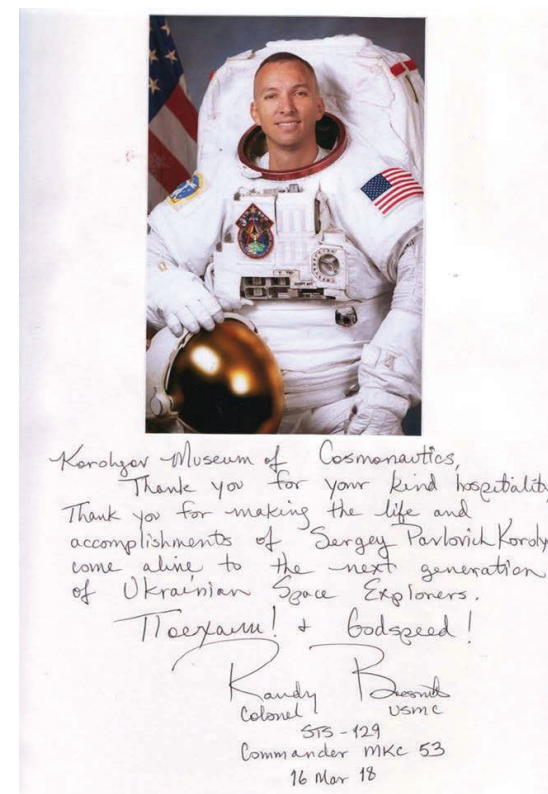 Korolyov Museum of Cosmonautics,
Thank you for your kind hospitalit
Thank you for making the life and
accomplishments of Sergey Pavlovich Koroly
come alive to the next generation
of Ukrainian Space Explorers.
Поехали! & Godspeed!
Randy Bresnik
Colonel USMC
STS-129
Commander МКС 53
16 Mar 18